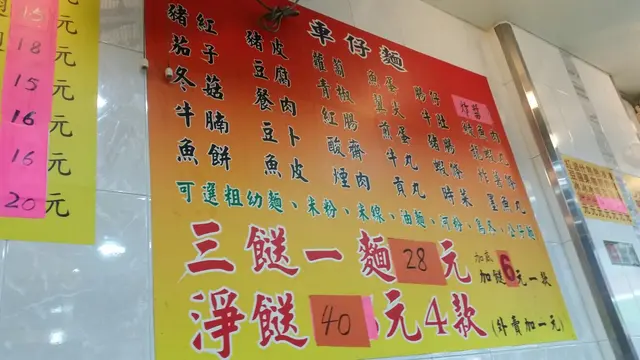 車仔麵
豬紅 豬皮 蘿蔔 魚蛋 腸仔 炸醬
茄子 豆腐 青椒 翼尖 牛肚 豬魚肉
冬菇 餐肉 紅腸 煎蛋 豬腸
牛腩 豆卜 酸齋 牛丸 蝦棒
魚餅 魚皮 煙肉 貢丸 時菜 墨魚丸
可選粗幼麵、米粉、米線、油麵、河粉、烏冬、公仔麵
三餸一麵28元
加底
加餸6元一款
淨餸40元4款
(外賣加一元)
元
18元
15元
16元
16元
20元